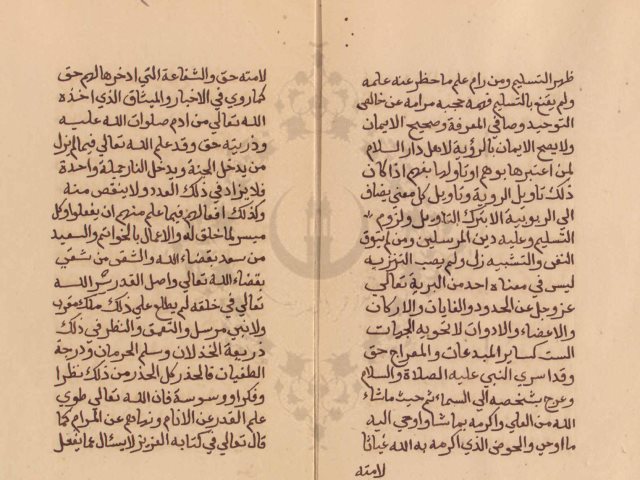 ظهر التسليم ومن رام علم ما حظر عنه علمه
ولم يقنع بالتسليم فهمه حجبه مرامه عن خالص
التوحيد وصافي المعرفة وصحيح الايمان
ولا يصح الايمان بالرؤية لاهل دار السلام
لمن اعتبرها بوهم او تاولها بفهم اذا كان
ذلك تاويل الروية وتاويل كل معنى يضاف
الى الربوبية الا بترك التاويل ولزوم
التسليم وعليه دين المرسلين ومن لم يتوق
النفي والتشبيه زل ولم يصب التنزيه
ليس في معناه احد من البرية تعالى
عز وجل عن الحدود والغايات والاركان
والاعضاء والادوات لا تحويه الجهات
الست كساير المبدعات والمعراج حق
وقد اسري النبي عليه الصلاة والسلام
وعرج بشخصه الى السماء ثم حيث ما شاء
الله من العلى واكرمه بما شاء واوحي اليه
ما اوحي والحوض الذي اكرمه به الله غياثا
لامته
لامته حق والشفاعة التي ادخرها لهم حق
كما روي في الاخبار والميثاق الذي اخذه
الله تعالى من ادم صلوات الله عليه
وذريته حق وقد علم الله تعالى فيما لم يزل
من يدخل الجنة ويدخل النار جملة واحدة
فلا يزاد في ذلك العدد ولا ينقص منه
وكذلك افعالهم فيما علم منهم ان يفعلوا وكل
ميسر لما خلق له والاعمال بالخواتم والسعيد
من سعد بقضاء الله والشقي من شقي
بقضاء الله تعالى واصل القدر سر الله
تعالى في خلقه لم يطلع على ذلك ملك مقرب
ولا نبي مرسل والتعمق والنظر في ذلك
ذريعة الخذلان وسلم الحرمان ودرجة
الطغيان فالحذر كل الحذر من ذلك نظرا
وفكرا ووسوسة فان الله تعالى طوي
علم القدر عن الانام ونهاهم عن المرام كما
قال تعالى في كتابه العزيز لا يسئال عما يفعل